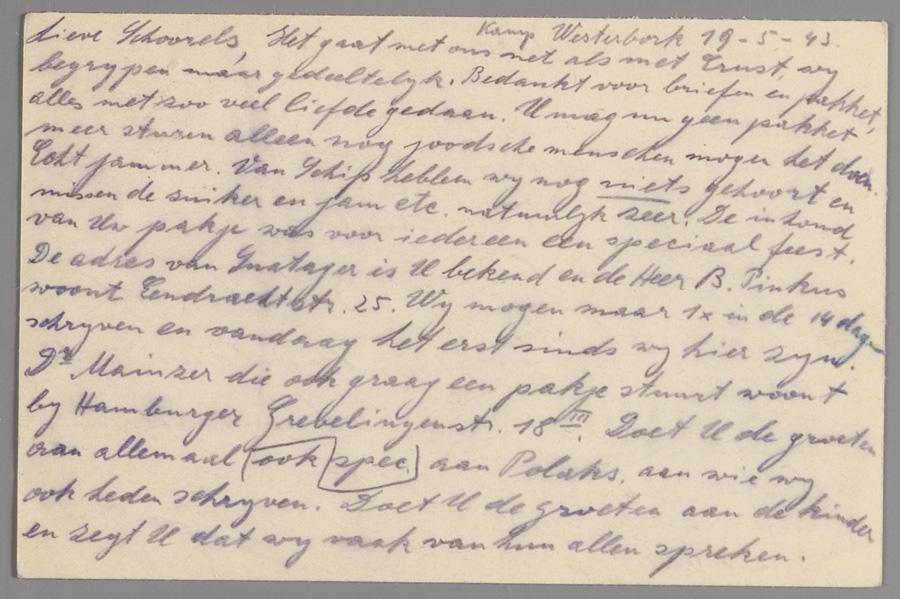 Kamp Westerbork 19-5-43.
Lieve Schoorels, Het gaat met ons net als met Trust, wy
begrypen maar gedeeltelyk. Bedankt voor briefen en pakket,
alles met zoo veel liefde gedaan. U mag nu geen pakket
meer sturen alleen nog joodsche menschen mogen het doen.
Echt jammer. Van Schip hebben wy nog niets gehoort en
missen de suiker en jam etc. natuurlyk zeer. De inhoud
van Uw pakje was voor iedereen een speciaal feest.
De adres van is U bekend en de Heer B. Pinkus
woont Eendrachtstr. 25. Wy mogen maar 1x in de 14 dagen
schryven en vandaag het erst sinds wy hier zyn.
Dr Mainzer die ook graag een pakje stuurt woont
by Hamburger Grevelingenstr. 18 III. Doet U de groeten
aan allemaal (ook spec.) aan Polaks, aan wie wy
ook heden schryven. Doet U de groeten aan de kinder
en zegt U dat wy vaak van hun allen spreken.